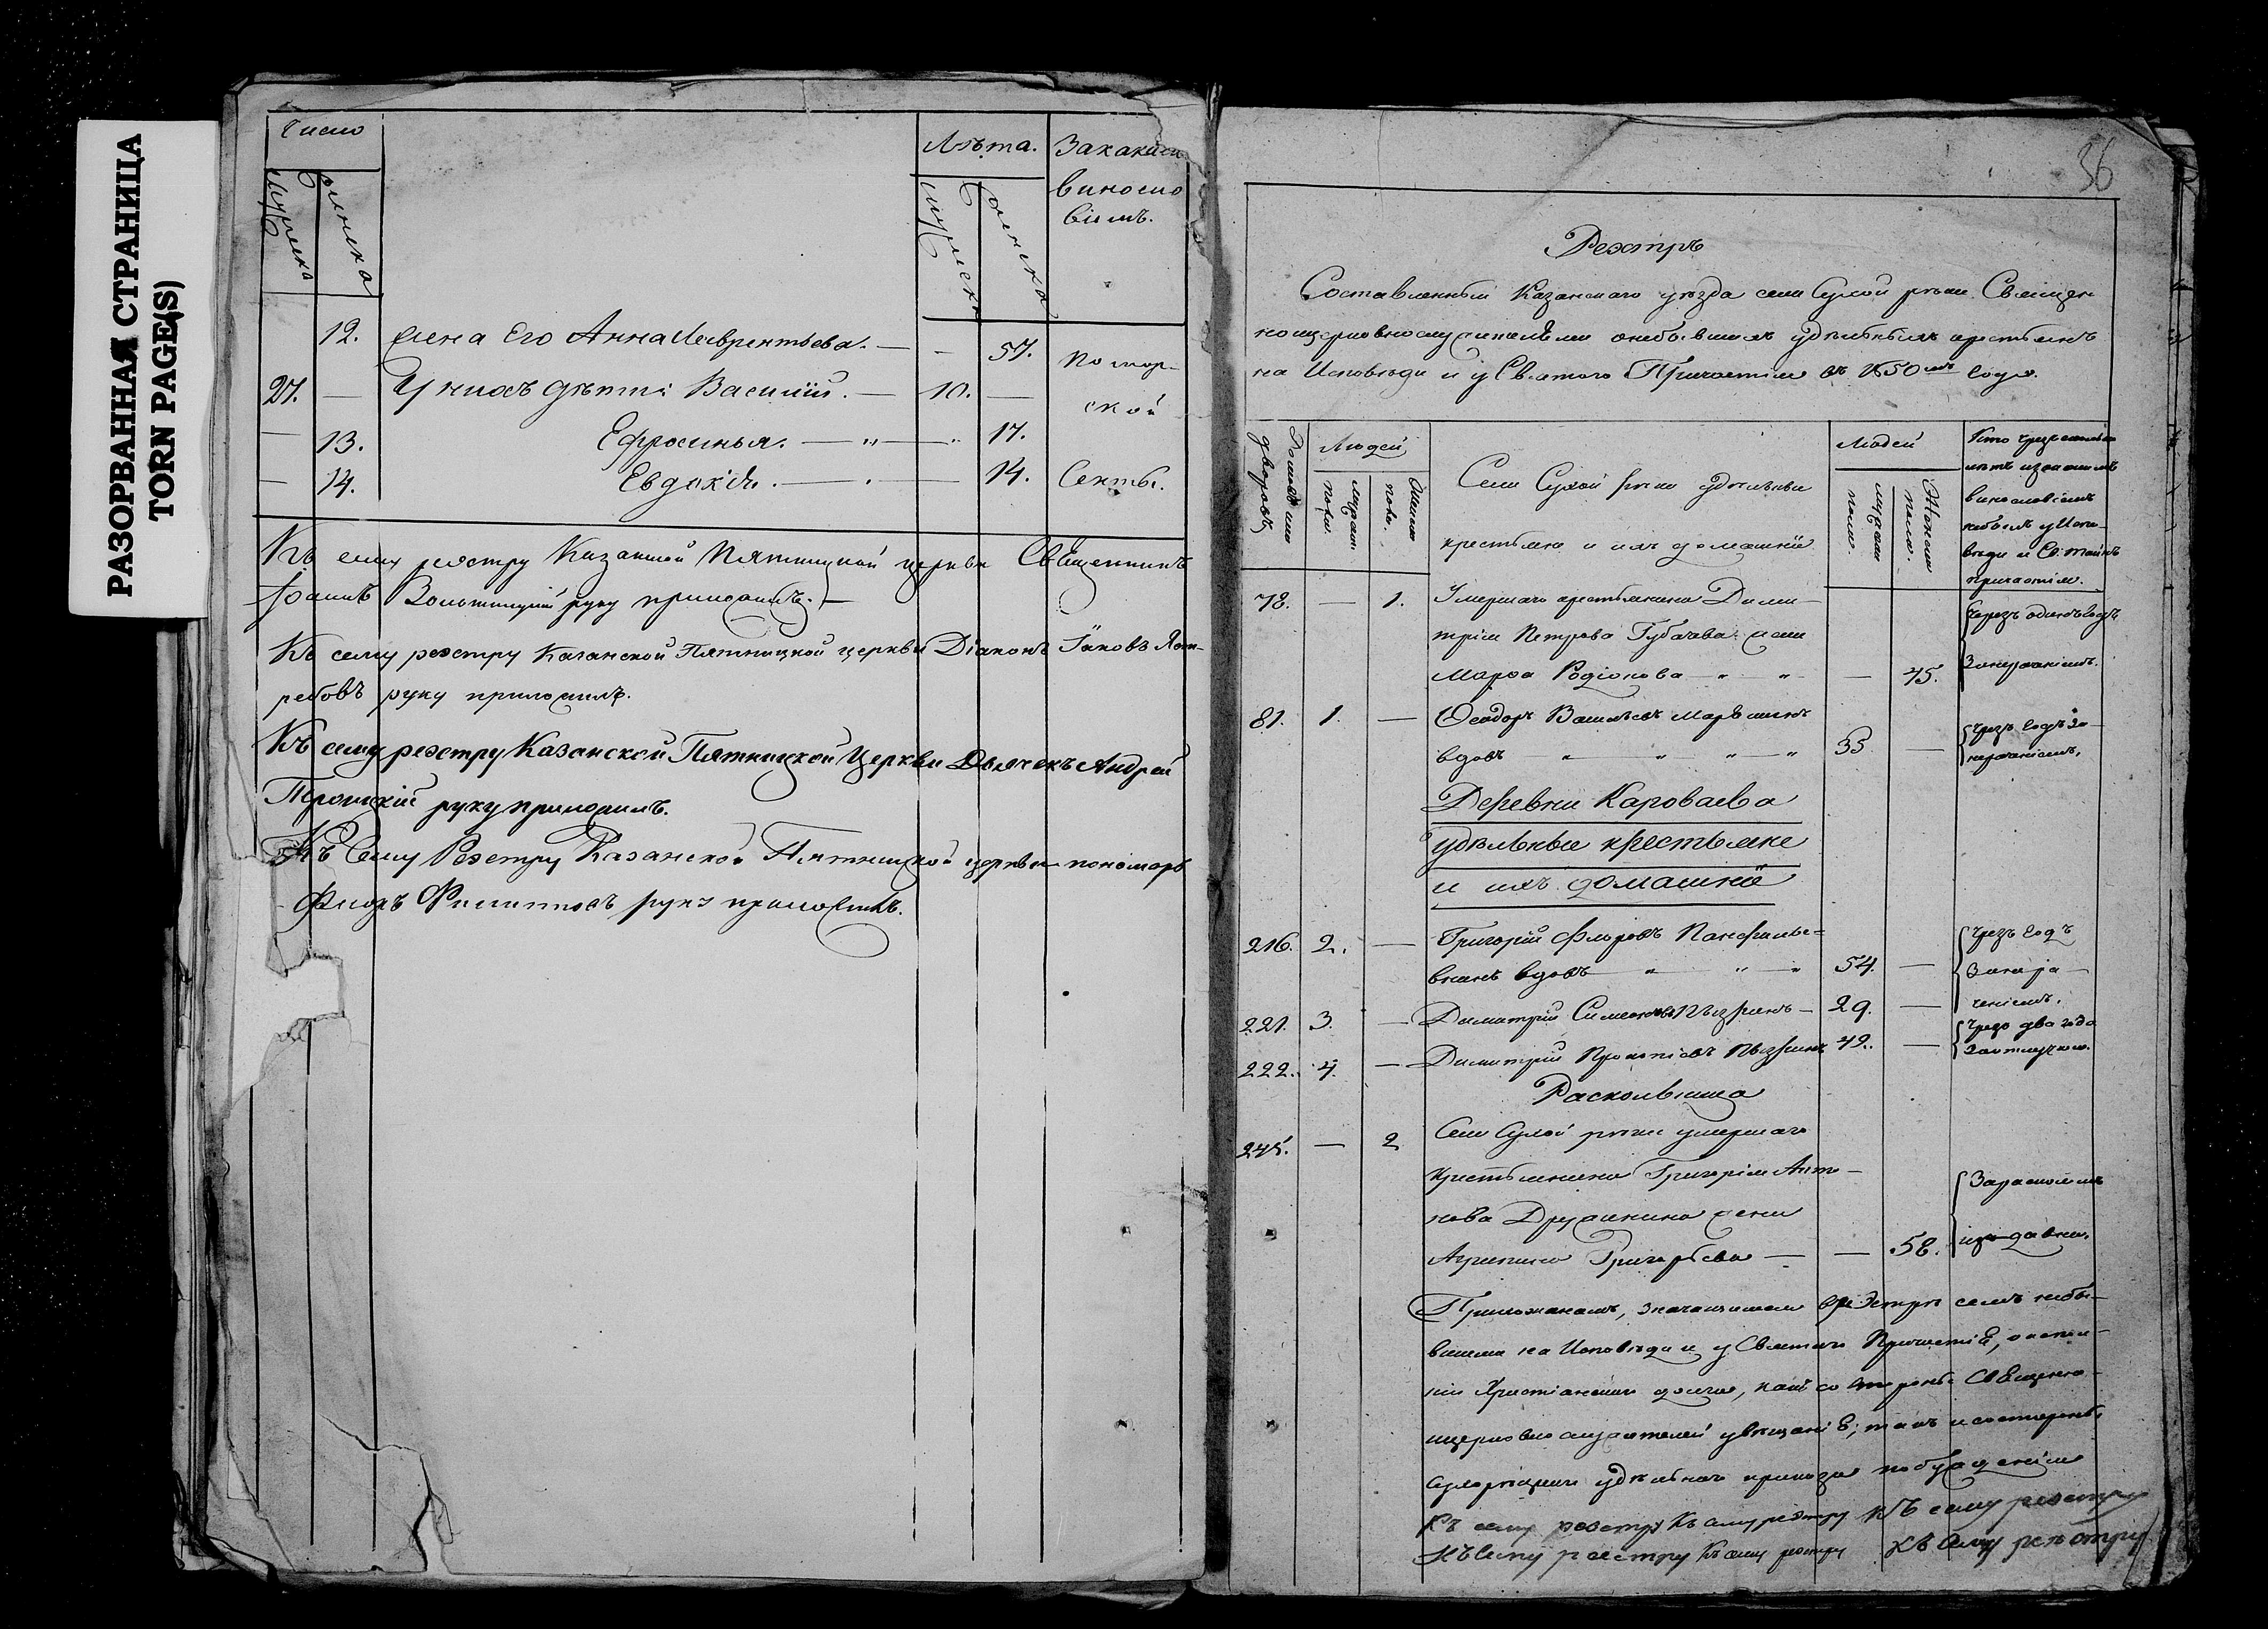 РАЗОРВАННАЯ СТРАНИЦА
TORN PAGE(S)
Число
мужеска
женска
Лѣта.
мужеска
женска
За какимъ
виносло
віемъ.
12. жена Его Анна Лаврентьева. — — 57.
27. — У нихъ дѣти: Василій. — 10. —
— 13. Ефросинья. — „ — „ 17.
— 14. Евдокія. — . — 14.
помор-
ской
Секты.
Къ сему реэстру Казанской Пятницкой церкви Священникъ
Іоаннъ руку приложилъ. —
Къ сему реэстру Казанской Пятницкой церкви Діаконъ Іаковъ Яст-
ребовъ руку приложилъ.
Къ сему реэстру Казанской Пятницкой Церкви Дьячекъ Андрей
Троицкій руку приложилъ.
Къ Сему Реэстру Казанской Пятницкой церкви пономарь
Филипповъ руку приложилъ.
36
Реэстръ
Составленный Казанскаго уѣзда села Сухой рѣки Священ
ноцерковнослужителями о небывшихъ удѣльныхъ крестьянъ
на Исповѣди и у Святаго Причастія въ 1850мъ году.
дворовъ
Людей
мужеск.
пола.
Женска
пола.
Села Сухой рѣки удѣльные
крестьяне и ихъ домашніе
Людей
мужеска
пола.
Женска
пола.
Кто чрезъ сколько
лѣтъ и за какимъ
винословіемъ
небылъ у Испо-
вѣди и Св. Тайнъ
причастія.
78. — 1. Умершаго крестьянина Дими-
трія Петрова Губачева жена
Марѳа Родіонова — „ — „ — 45.
Чрезъ одинъ годъ
За нераченіемъ.
81. 1. — Ѳеодоръ Васильевъ
вдовъ „ — „ — „ — „ 35 —
Чрезъ годъ за
нераченіемъ.
Деревни Караваева
удѣльные крестьяне
и ихъ домашніе
216. 2. — Григорій Флоровъ Панфиль-
вдовъ — „ — „ — „ 54. —
Чрезъ годъ
За нера-
ченіемъ.
221. 3. — Димитрій Симеоновъ Пызринъ — 29. —
222. 4. — Димитрій Прокопіевъ Пызринъ 49. —
Чрезъ два года
За отлучкою.
Раскольница
245. — 2 Села Сухой рѣки умершаго
крестьянина Григорія Анто-
нова Дружинина жена
Агрипина Григорьева — — 58.
За расколомъ
издавна.
Прихожанамъ, значащимся въ реэстрѣ семъ небы-
вшимъ на Исповѣди и у Святаго Причастіе, о испол-
ніи Христіанскаго долга, какъ со стороны Священно-
церковнослужителей увѣщаніе; такъ и со стороны
Сухорѣцкаго удѣльнаго приказа побужденія
Къ сему реэстру Къ сему реэстру Къ сему реэстру
Къ сему реэстру Къ сему реэстру Къ сему реэстру